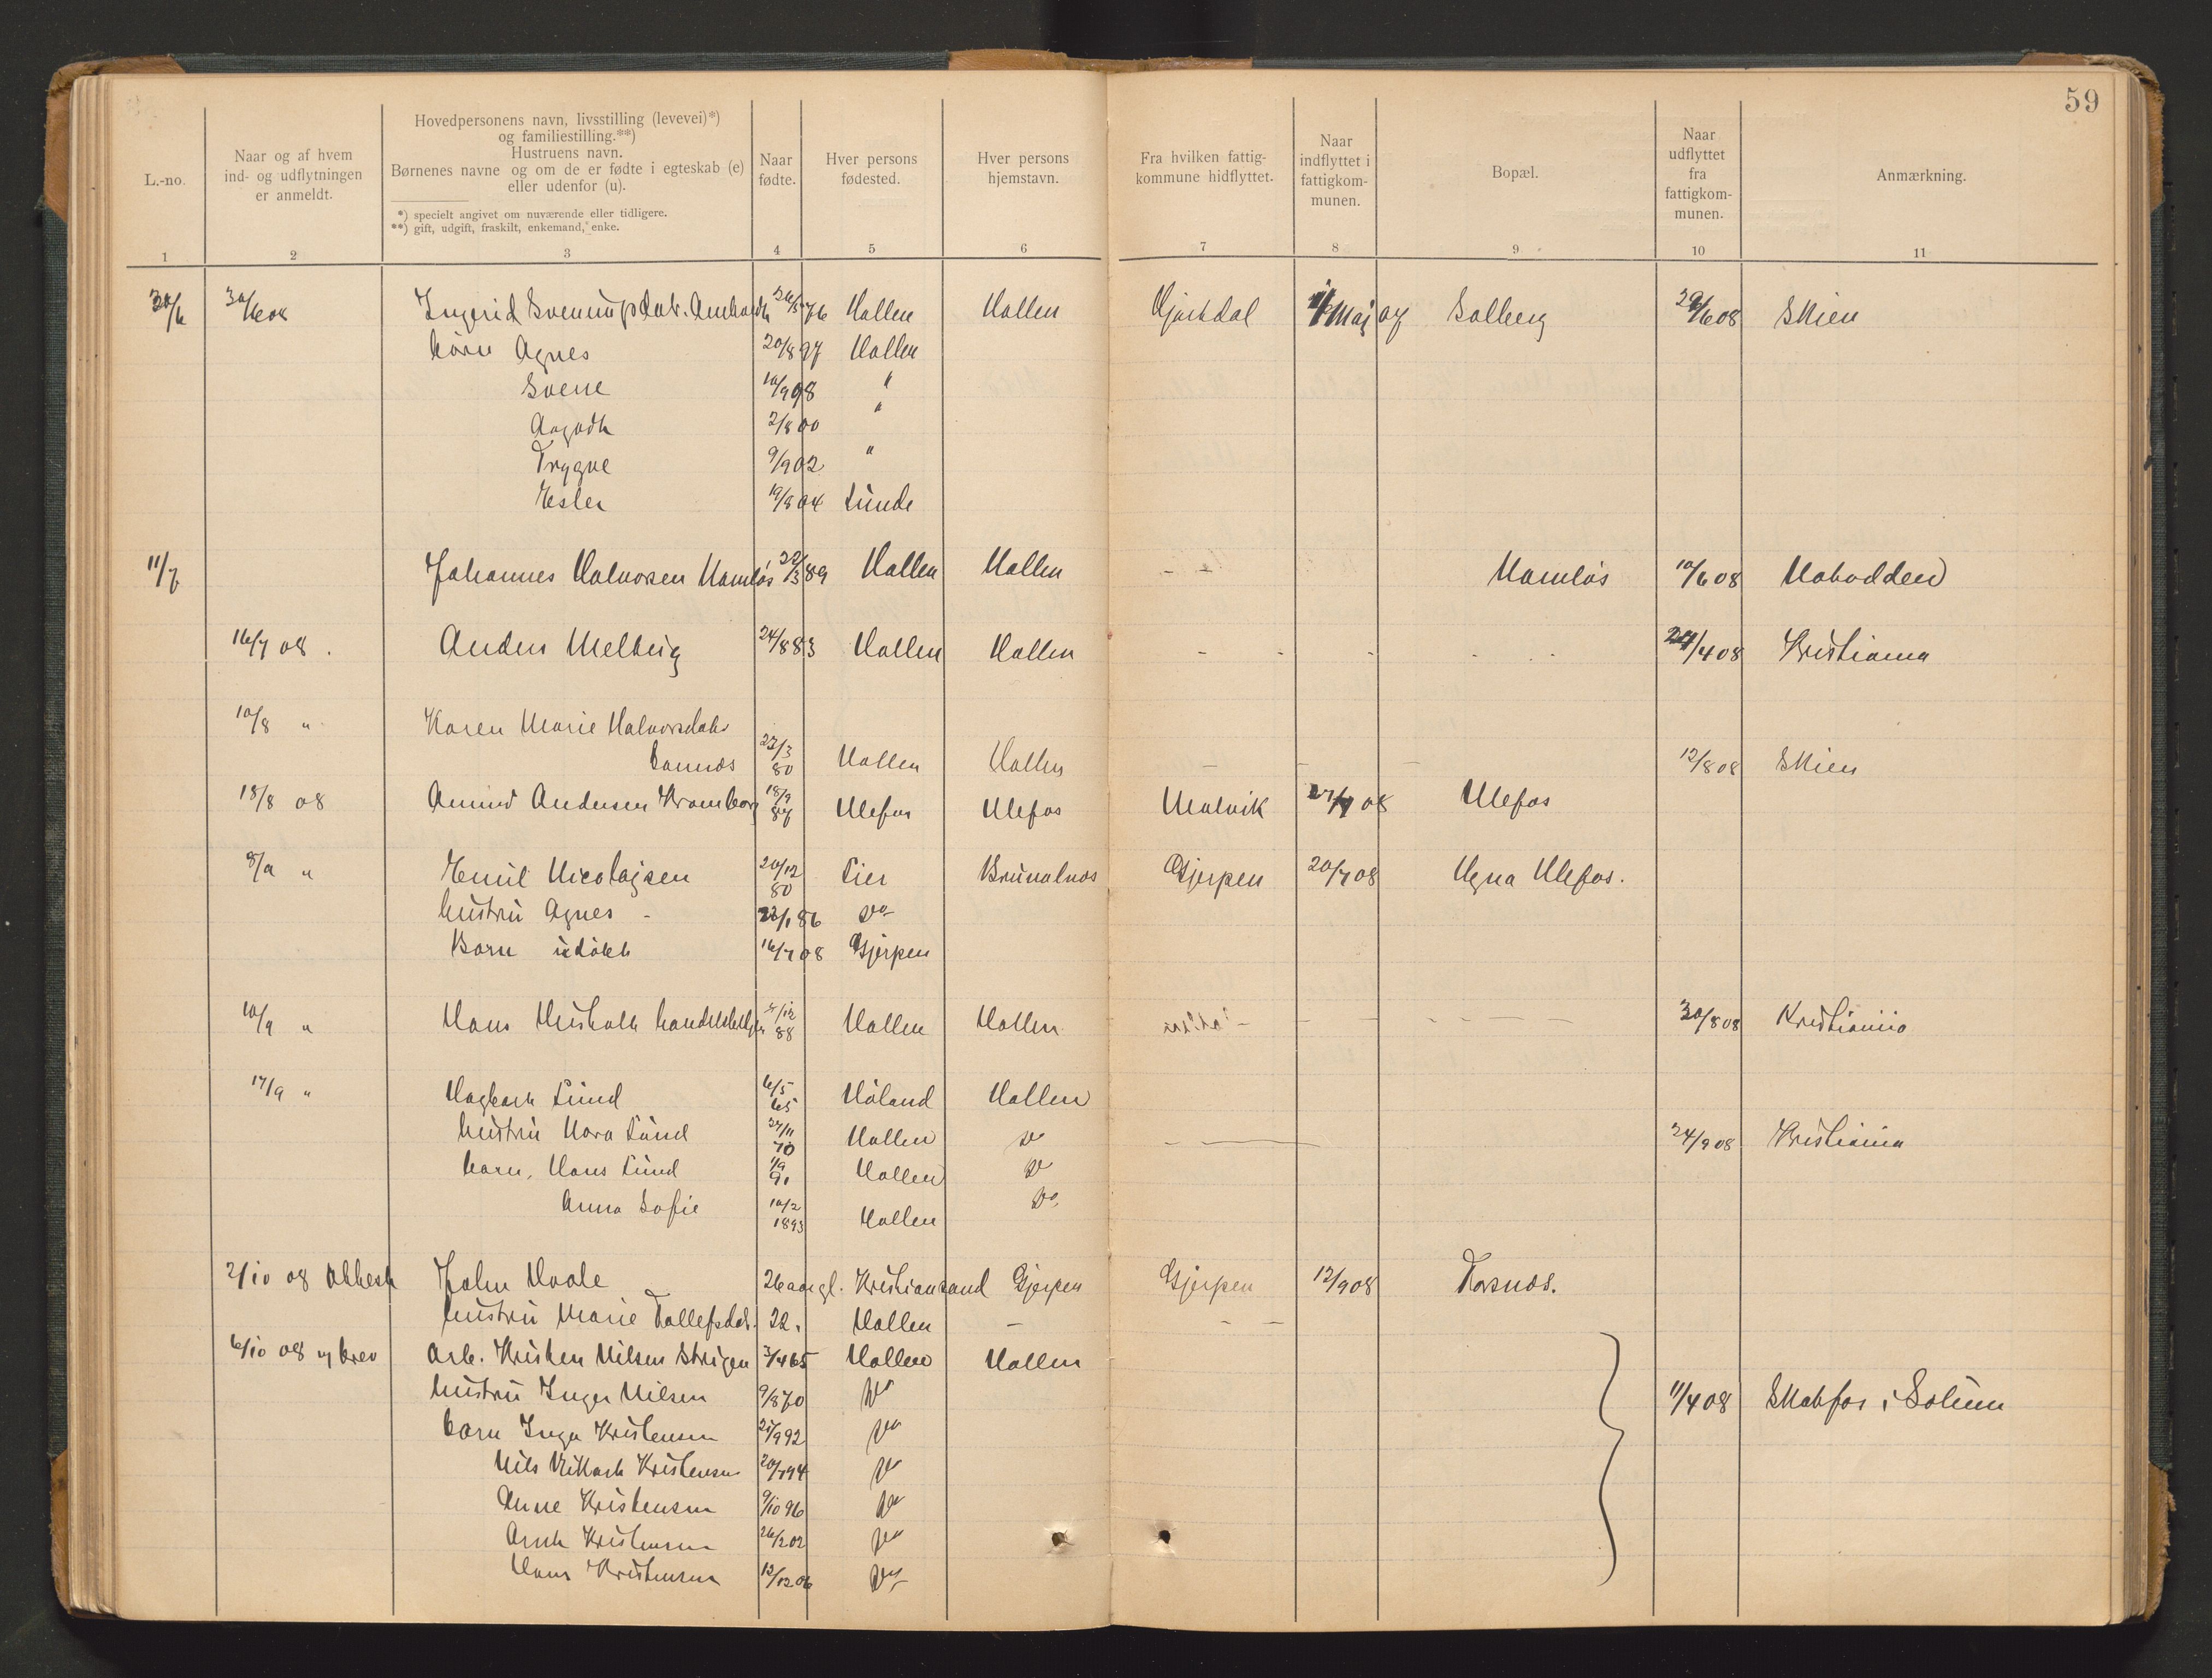 59
L.-no.
Naar og af hvem
ind- og udflytningen
er anmeldt.
Hovedpersonens navn, livsstilling (levevei)*)
og familiestilling.**)
Hustruens navn.
Børnenes navne og om de er fødte i egteskab (e)
eller udenfor (u).
*) specielt angivet om nuværende eller tidligere.
**) gift, udgift, fraskilt, enkemand, enke.
Naar
fødte.
Hver persons
fødested.
Hver persons
hjemstavn.
Fra hvilken fattig-
kommune hidflyttet.
Naar
indflyttet i
fattigkom-
munen.
Bopæl.
Naar
udflyttet
fra
fattigkom-
munen.
Anmærkning.
1 2 3 4 5 6 7 8 9 10 11
30/6 30/6 08 Ingerid 26/5 76 Hollen Hollen Hjartdal Maj 07 Solberg 29/6 08 Skien
börn Agnes 20/8 97 Hollen
Sverre 10/9 98 "
Aagodt 2/8 00 "
Trygve 9/9 02 "
Esler 19/8 04 Lunde
11/7 Johannes Halvorsen Namløs 22/3 89 Hollen Hollen - - Namløs 10/6 08 Notodden
16/7 08 . Anders Melberg 24/8 83 Hollen Hollen - - - - - 24/4 08 Kristiania
10/8 " Karen Marie Halvorsdatr
27/3 80 Hollen Hollen - - - 12/8 08 Skien
18/8 08 Amund Andersen Kromborg 18/9 87 Ulefos Ulefos Malvik 27/7 08 Ulefos
8/9 " Emil Nicolajsen 20/12 80 Lier Brunalnæs Gjerpen 20/7 08 Ulefos.
hustru Agnes - 22/1 86 Do
Barn udöbt 16/7 08 Gjerpen
10/9 " Hans 88 Hollen Hollen - - - - - 30/8 08 Kristiania
17/9 " Hagbart Lund 6/5 65 Höland Hollen
hustru Nora Lund 27/11 70 Hollen Do - 24/9 08 Kristiania
barn. Hans Lund 1/9 91 Hollen Do
Anna Sofie 10/2 1893 Hollen Do.
2/10 08 John Hvale 26 aar gl. Kristiansand Gjerpen Gjerpen 12/9 08 Torsnæs.
hustru Marie Tollefsdtr. 22. Hollen - - -
6/10 08 brev Arb. Kristen Nilsen 3/4 65 Hollen Hollen
hustru Inger Nilsen 9/8 70 Do 11/4 08 Skotfos i Solum
barn Inga Kristensen 25/9 92 Do
Nils Kristensen 20/7 94 Do
Anne Kristensen 9/10 96 Do
Arnt Kristensen 26/2 02 Do
Hans Kristensen 12/12 06 Do